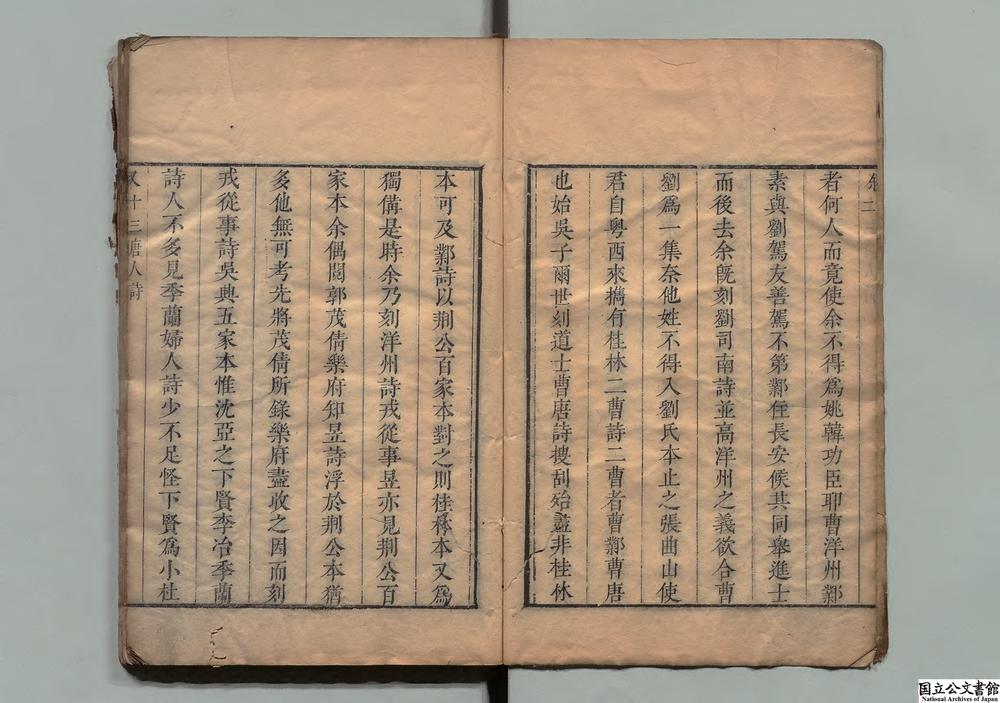 二
者何人而竟使余不得為姚韓功臣耶曹洋州鄴
素與劉駕友善駕不第鄴在長安候共同舉進士
而後去余既刻劉司南詩並高洋州之義欲合曹
劉為一集奈他姓不得入劉氏本止之張曲山使
君自粵西來攜有桂林二曹詩二曹者曹鄴曹唐
也始吳子爾世刻道士曹唐詩搜刮殆盡非桂林
本可及鄴詩以荆公百家本對之則桂林本又為
獨備是時余乃刻洋州詩戎從事昱亦見荆公百
家本余偶閱郭茂倩樂府知昱詩浮於荆公本猶
多他無可考先將茂倩所錄樂府盡收之因而刻
戎從事詩吳興五家本惟沈亞之下賢李冶季蘭
詩人不多見季蘭婦人詩少不足怪下賢為小杜
又十三唐人詩
国立公文書館
National Archives of Japan